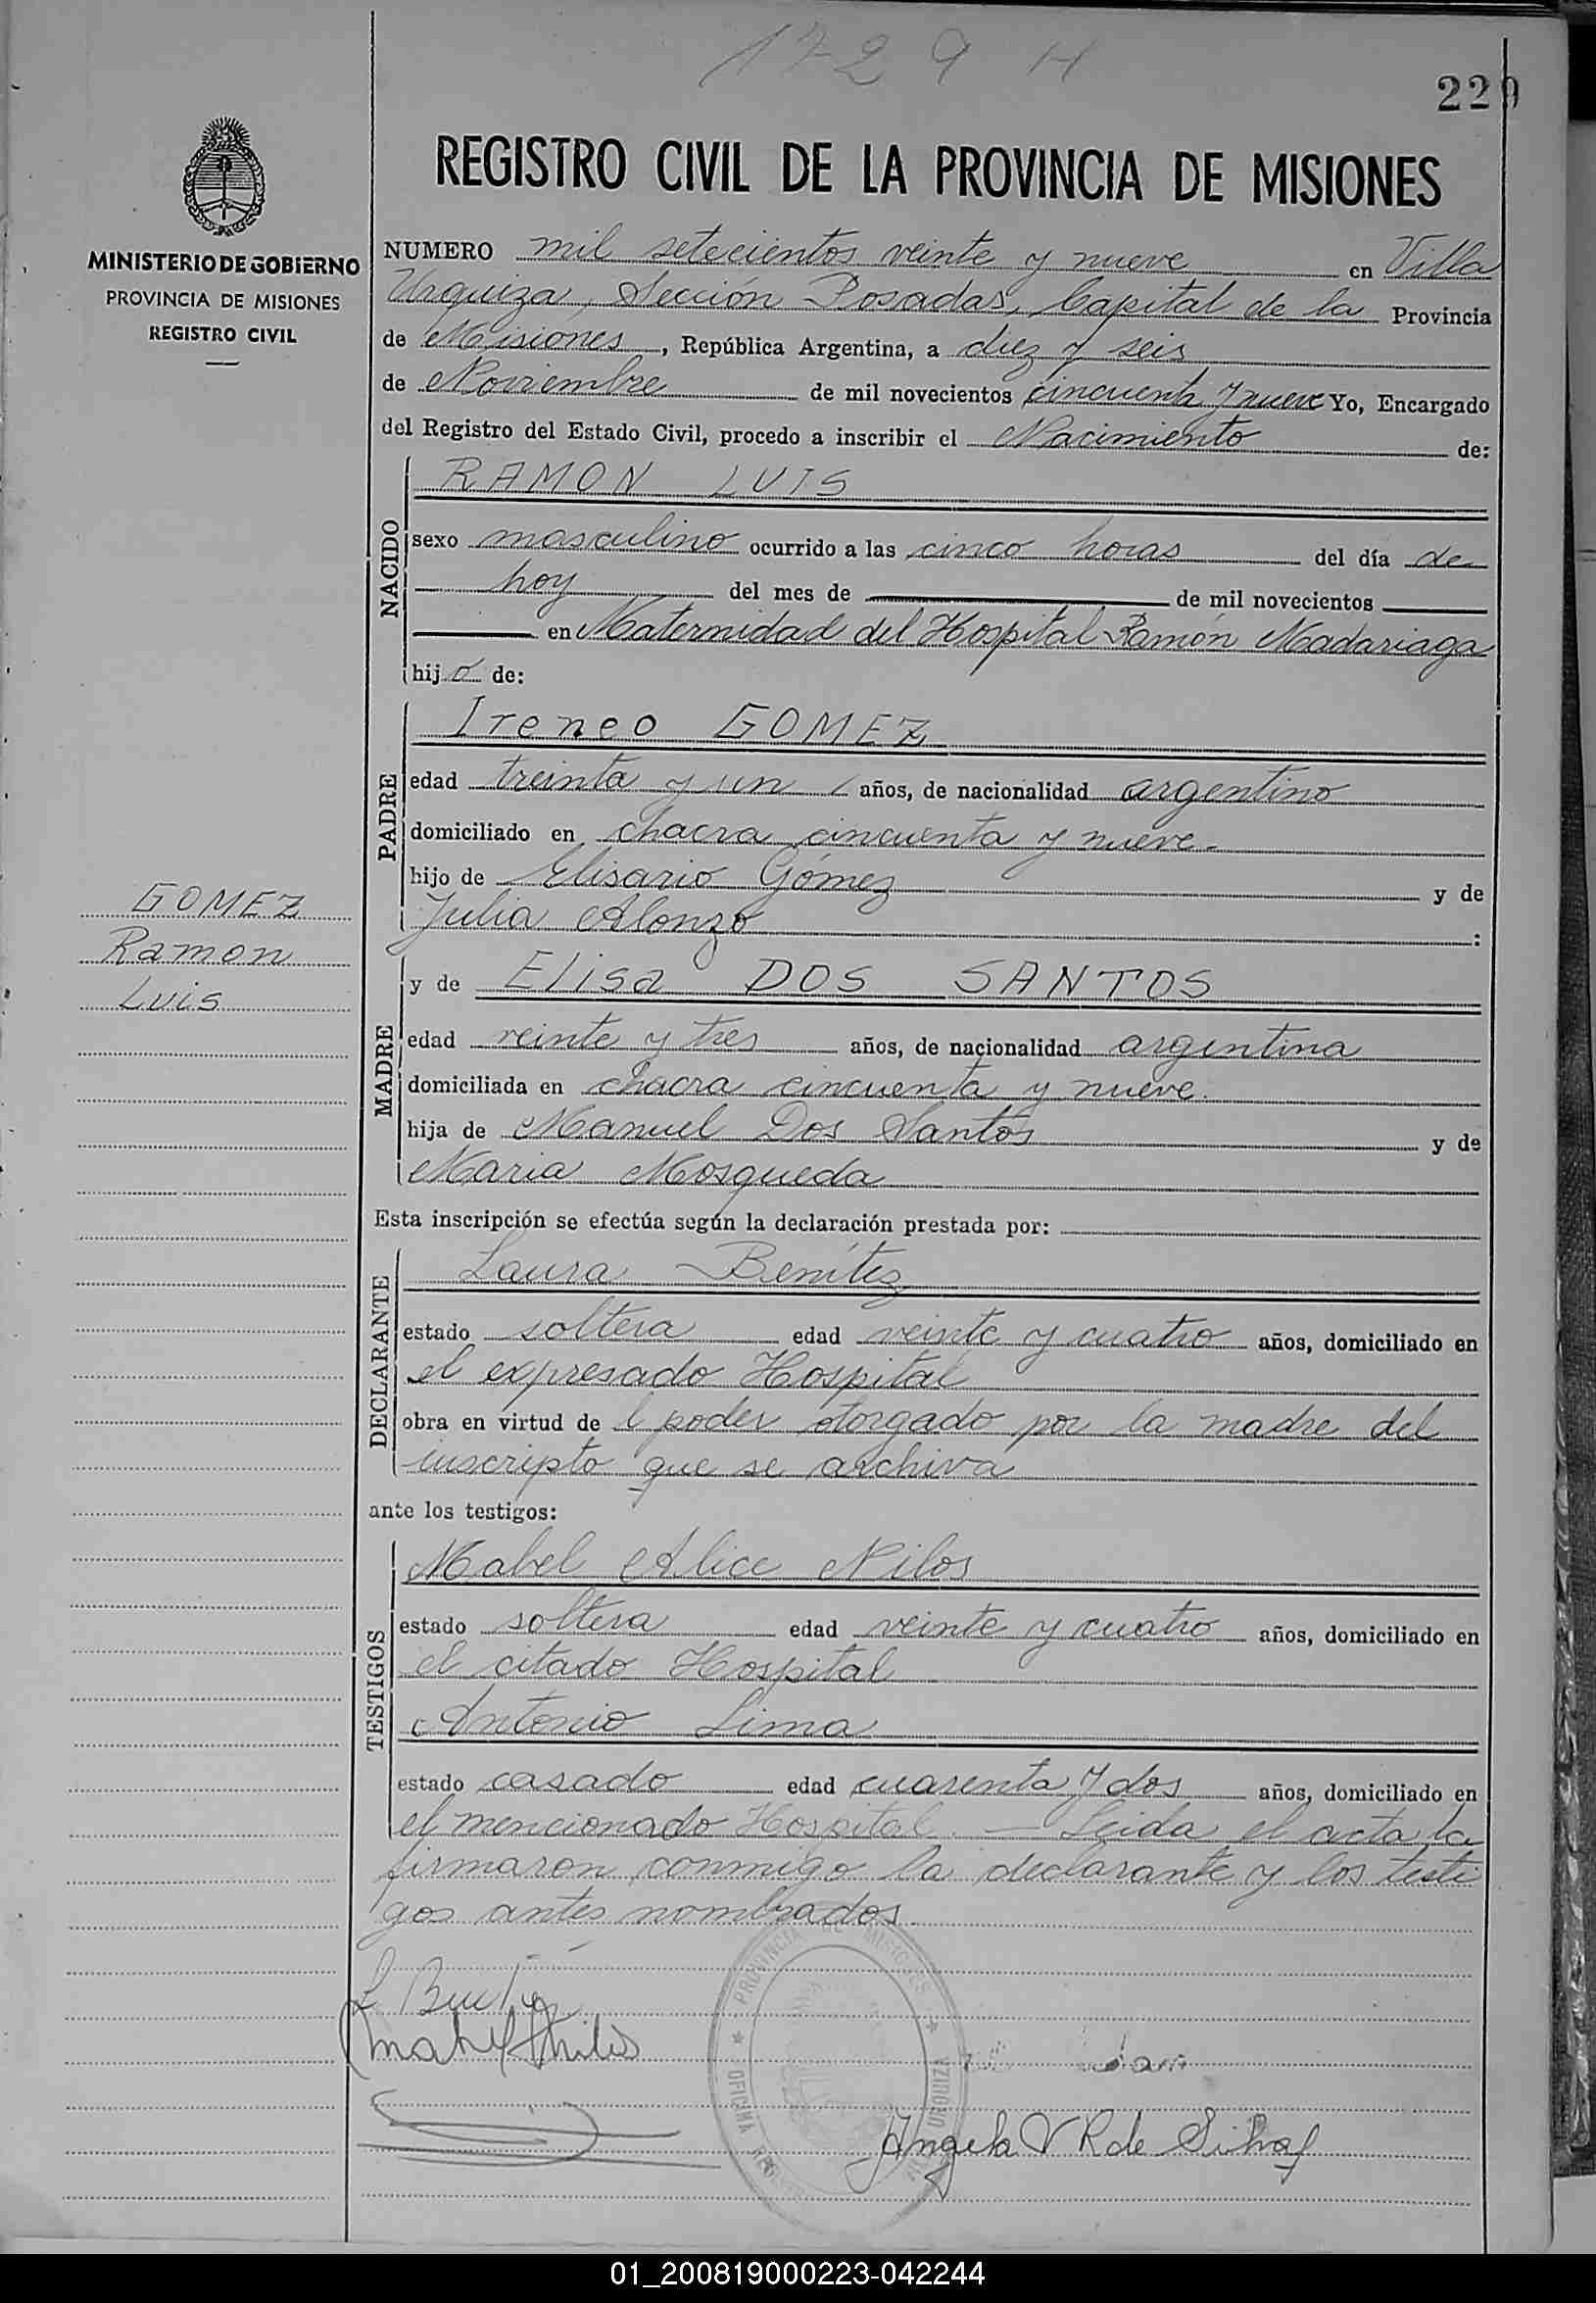 1729 H
229
REGISTRO CIVIL DE LA PROVINCIA DE MISIONES
MINISTERIO DE GOBIERNO
PROVINCIA DE MISIONES
REGISTRO CIVIL
NUMERO mil setecientos veinte y nueve en Villa
Urquiza, Sección Posadas, Capital de la Provincia
de Misiones, República Argentina, a diez y seis
de Noviembre de mil novecientos cincuenta y nueve Yo, Encargado
del Registro del Estado Civil, procedo a inscribir el Nacimiento de:
NACIDO
RAMON LUIS
sexo masculino ocurrido a las cinco horas del día de
hoy del mes de de mil novecientos
en Maternidad del Hospital Ramón Madariaga
hijo de:
PADRE
Ireneo GOMEZ
edad treinta y un años, de nacionalidad argentino
domiciliado en chacra cincuenta y nueve.
hijo de Elisario Gómez y de
Julia Alonzo :
GOMEZ
Ramon
Luis
MADRE
y de Elisa DOS SANTOS
edad veinte y tres años, de nacionalidad argentina
domiciliada en chacra cincuenta y nueve.
hija de Manuel Dos Santos y de
Maria Mosqueda
Esta inscripción se efectúa según la declaración prestada por:
DECLARANTE
Laura Benítez
estado soltera edad veinte y cuatro años, domiciliado en
el expresado Hospital
obra en virtud de l poder otorgado por la madre del
inscripto que se archiva
ante los testigos:
TESTIGOS
Mabel Alice Nilos
estado soltera edad veinte y cuatro años, domiciliado en
el citado Hospital
Antonio Lima
estado casado edad cuarenta y dos años, domiciliado en
el mencionado Hospital. — Leida el acta la
firmaron conmigo la declarante y los testi
gos antes nombrados.
PROVINCIA DE MISIONES
OFICINA
Angela V R de Silva
01_200819000223-042244